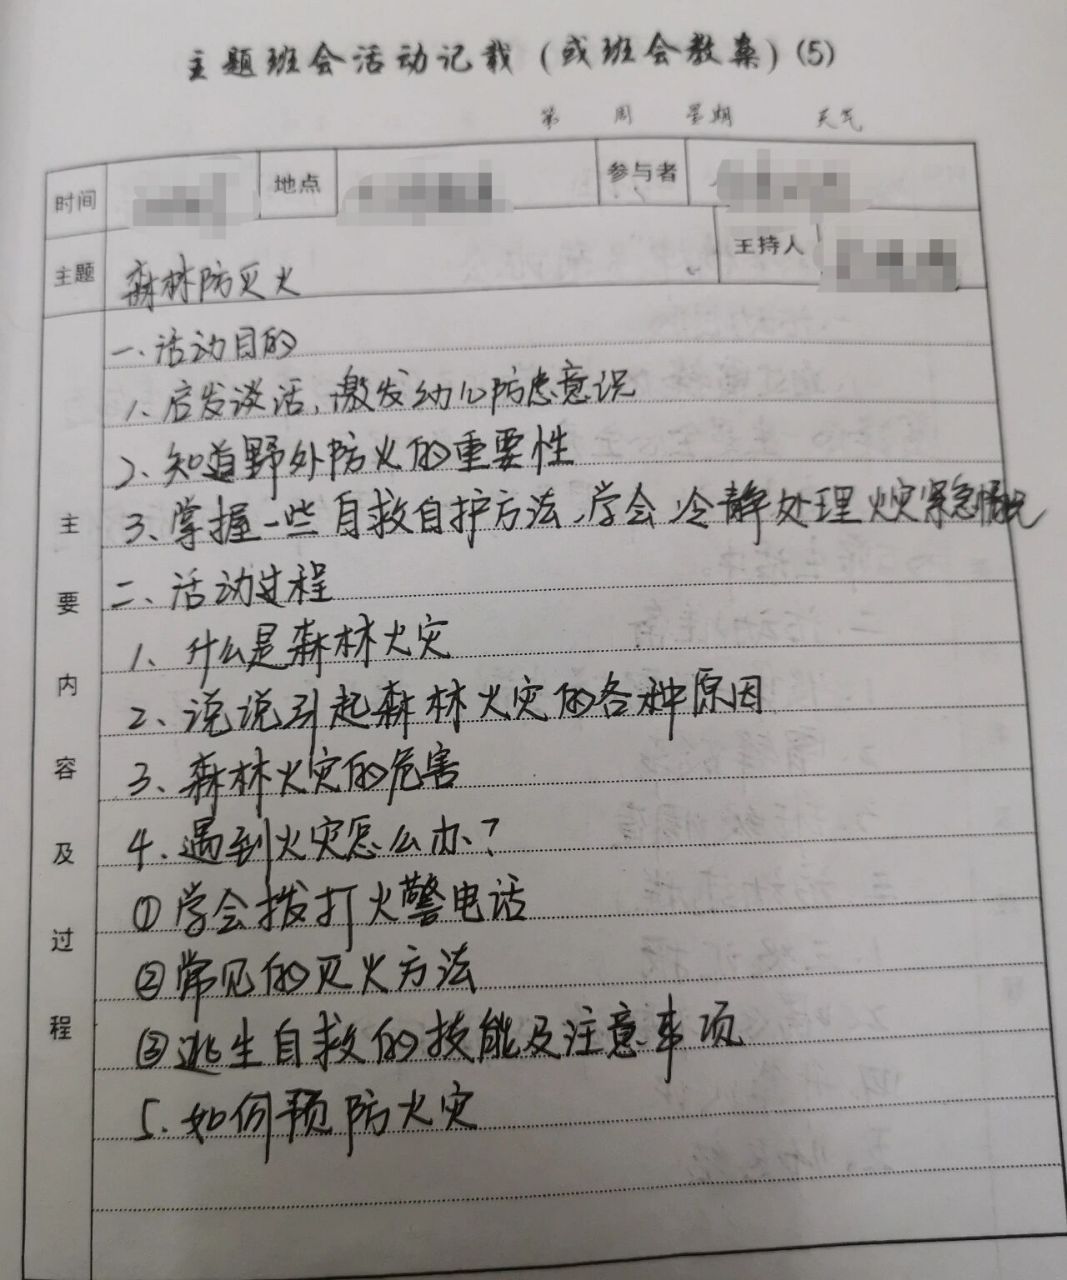 主题班会活动记载(或班会教案)(5)
第 周 星期 天气
时间 地点 参与者
主题 森林防灭火 主持人
主要内容及过程
一、活动目的
1、启发谈话,激发幼儿防患意识
2、知道野外防火的重要性
3、掌握一些自救自护方法,学会冷静处理火灾紧急情况
二、活动过程
1、什么是森林火灾
2、说说引起森林火灾的各种原因
3、森林火灾的危害
4、遇到火灾怎么办?
①学会拨打火警电话
②常见的灭火方法
③逃生自救的技能及注意事项
5.如何预防火灾